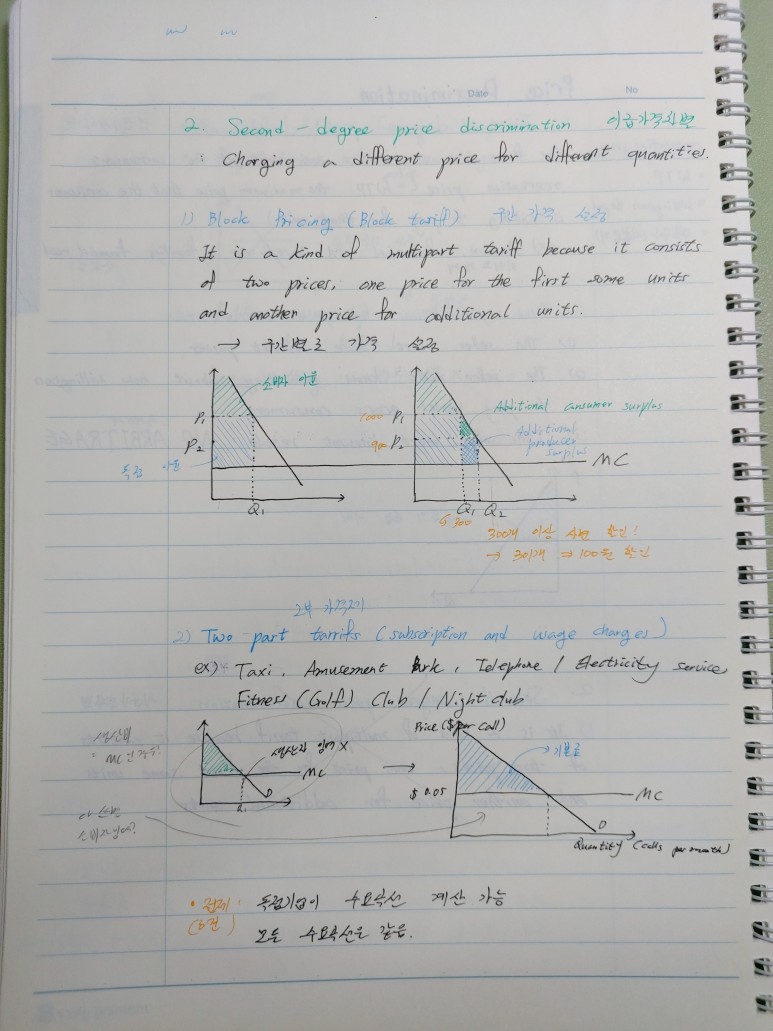 Date
No
2. Second-degree price discrimination 이급가격차별
: Charging a different price for different quantities.
1) Block Pricing (Block tariff) 구간 가격 설정
It is a kind of multipart tariff because it consists
of two prices, one price for the first some units
and another price for additional units.
→ 구간별로 가격 설정
소비자 잉여
P₁
P₂
독점 이윤
Q₁
1000 P₁
900 P₂
Additional consumer surplus
Additional
producer
surplus
MC
Q₁ Q₂
↳ 300
300개 이상 사면 할인!
→ 301개 ⇒ 100원 할인
2부 가격제
2) Two-part tarrifs (subscription and usage charges)
ex) Taxi, Amusement Park, Telephone / Electricity service,
Fitness (Golf) Club / Night club
생산자 잉여 X
MC
D
Q₁
→
Price ($ per call)
기본료
$ 0.05
MC
D
Quantity (calls per month)
• 전제 : 독점기업이 수요곡선 계산 가능
모든 수요곡선은 같음.